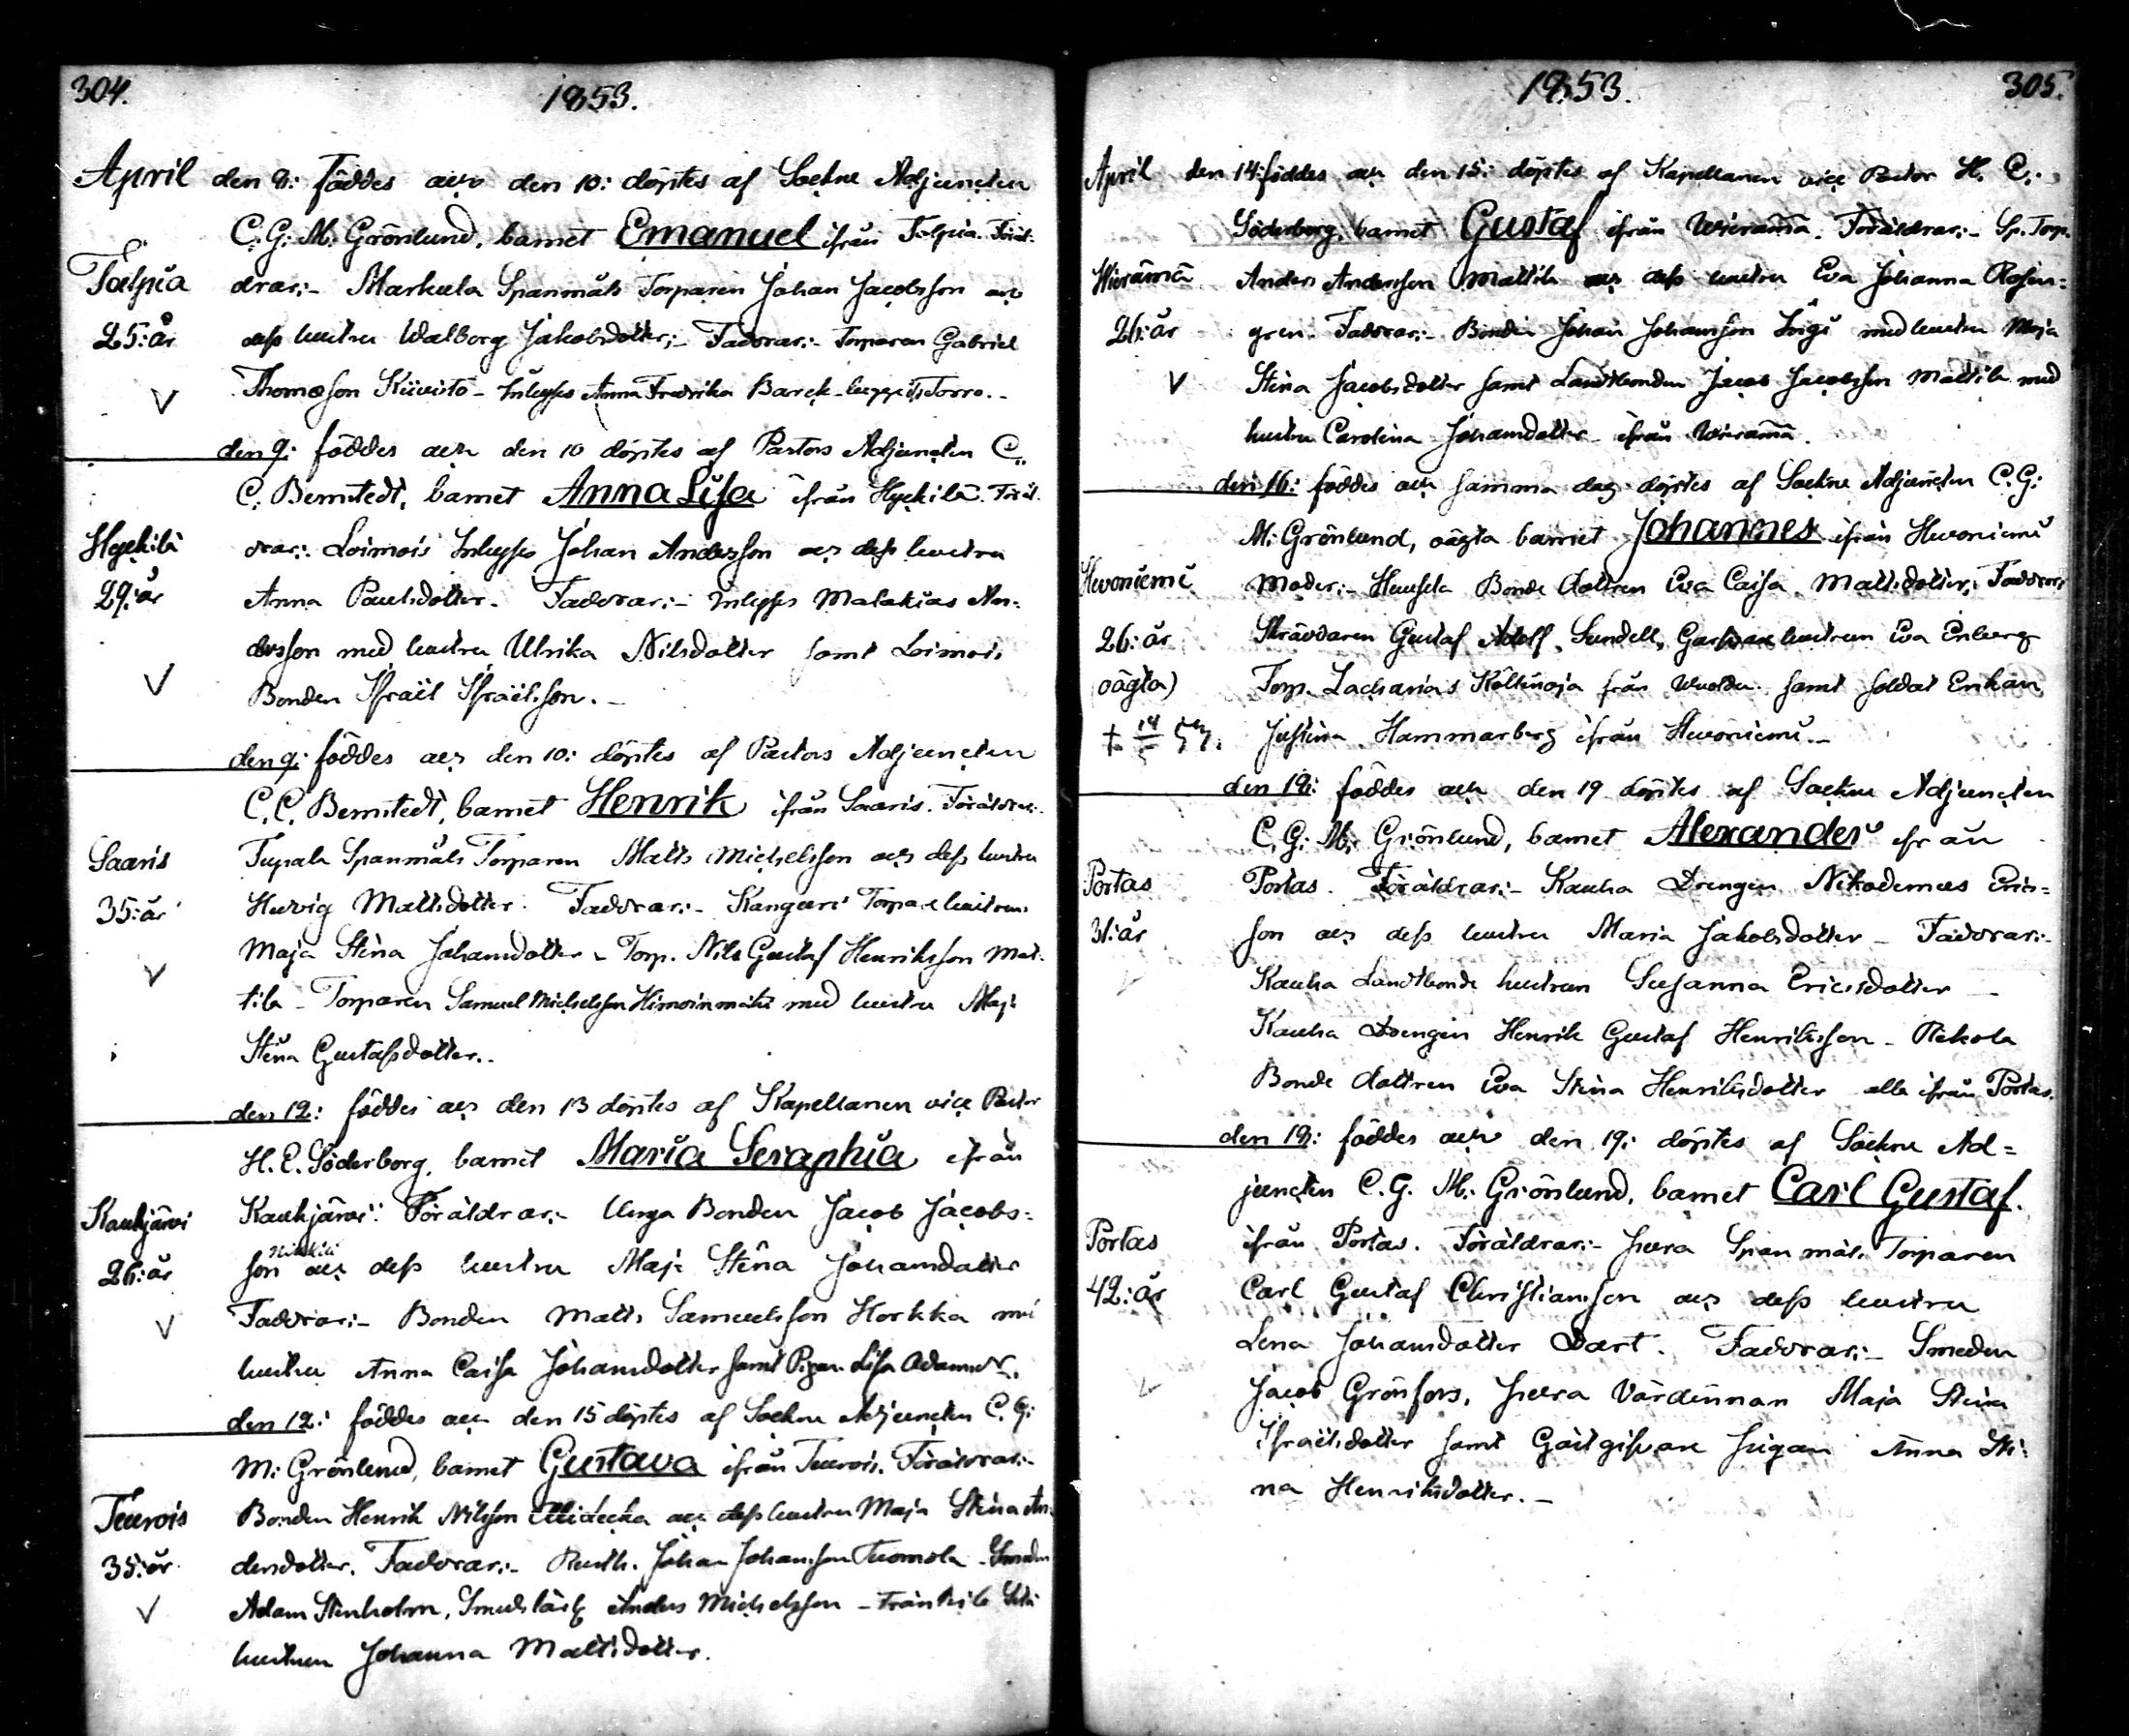 304.
1853.
April den 9: föddes och den 10: döptes af Sockne Adjuncten
C. G: M: Grönlund, barnet Emanuel ifrån Talpia. Föräl-
Talpia drar:- Markula Spanmåls Torparen Johan Jacobsson och
25: år dess hustru Walborg Jakobsdotter;- Faddrar:- Torparen Gabriel
V Thomasson Kiivistö - Inhyses Anna Fredrika Barck
den 9: föddes och den 10 döptes af Pastors Adjuncten C.
C. Bernstedt, barnet Anna Lisa ifrån Hyckilä. Föräl-
Hyckilä drar:- Loimois Inhyses Johan Andersson och dess hustru
29: år Anna Paulsdotter. Faddrar:- Inhyses Malakias An-
dersson med hustru Ulrika Nilsdotter samt Loimois
V Bonden Israël Israëlsson.-
den 9: föddes och den 10: döptes af Pastors Adjuncten
C. C. Bernstedt, barnet Henrik ifrån Saaris. Föräldrar:
Saaris Tupala Spanmåls Torparen Matts Michelsson och dess hustru
35: år Hervig Mattsdotter. Faddrar:- Kanguri Torpare hustrun
Maja Stina Johansdotter - Torp. Nils Gustaf Henriksson Mat-
V tila - Torparen Samuel Michelsson med hustru Maja
Stina Gustafsdotter.-
den 12: föddes och den 13 döptes af Kapellanen vice Pastor
H. E. Söderborg, barnet Maria Seraphia ifrån
Kaukjärvi Kaukjärvi. Föräldrar:- Unga Bonden Jacob Jacobs-
26: år son och dess hustru Maja Stina Johansdotter
V Faddrar:- Bonden Matts Samuelsson Horkka med
hustru Anna Caisa Johansdotter samt Pigan Lisa Adamsdr.
den 12: föddes och den 15 döptes af Sockne Adjuncten C. G:
M: Grönlund, barnet Gustava ifrån Teurois. Föräldrar:-
Teurois Bonden Henrik Nilsson och dess hustru Maja Stina An-
35: år dersdotter. Faddrar:- Johan Johansson Tuomola - Smeden
V Adam Stenholm, Anders Michelsson -
hustrun Johanna Mattsdotter.
1853.
305.
April den 14: föddes och den 15: döptes af Kapellanen vice Pastor H. E.
Söderborg, barnet Gustaf ifrån Wieramä. Föräldrar:- Sp. Torp.
Wierämä Anders Andersson Mattila och dess hustru Eva Johanna Rosen-
26: år gren. Faddrar:- Bonden Johan Johansson med hustru Maja
V Stina Jacobsdotter samt Landtbonden Jacob Jacobsson Mattila med
hustru Carolina Johansdotter ifrån Wieramä.
den 16: föddes och samma dag döptes af Sockne Adjuncten C. G:
M: Grönlund, oägta barnet Johannes ifrån Hevoniemi
Hevoniemi Moder:- Bonde dottren Eva Caisa Mattsdotter. Faddrar:
26: år Skräddaren Gustaf Adolf Sundell, Garfvare hustrun Eva Enberg
(oägta) Torp. Zacharias Koltinoja från samt soldat Enkan
† 14/5 53. Justina Hammarberg ifrån Hevoniemi.-
den 18: föddes och den 19 döptes af Sockne Adjuncten
C. G: M: Grönlund, barnet Alexander ifrån
Portas Portas. Föräldrar:- Kauha Drengen Nikodemus Erics-
31: år son och dess hustru Maria Jakobsdotter - Faddrar:-
Kauha Landtbonde hustrun Susanna Ericsdotter -
Kauha Drengen Henrik Gustaf Henriksson - Rekola
Bonde dottren Eva Stina Henriksdotter alla ifrån Portas.
den 18: föddes och den 19: döptes af Sockne Ad-
juncten C. G. M: Grönlund, barnet Carl Gustaf.
Portas ifrån Portas. Föräldrar:- Spanmåls Torparen
42: år Carl Gustaf Christiansson och dess hustru
Lena Johansdotter Dart. Faddrar:- Smeden
Jacob Grönfors, Värdinnan Maja Stina
Israëlsdotter samt Gästgifvare pigan Anna Sti-
na Henriksdotter.-